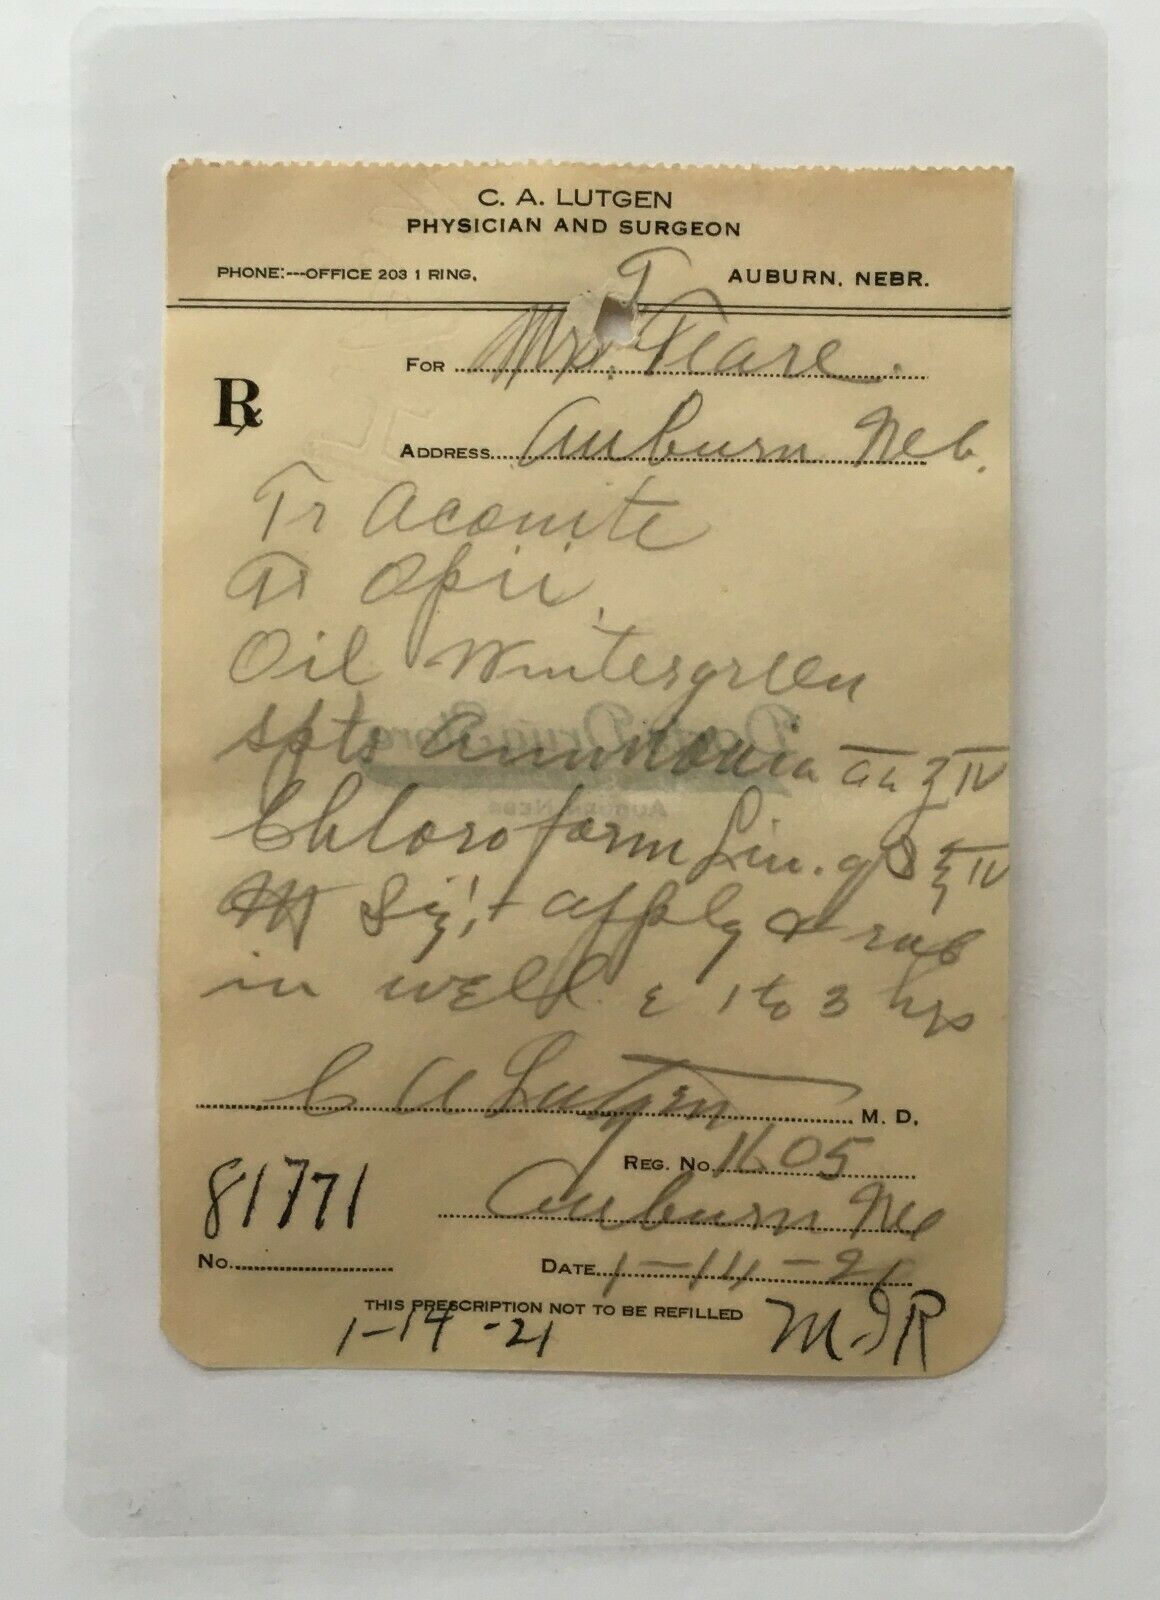 C. A. LUTGEN
PHYSICIAN AND SURGEON
PHONE:---OFFICE 203 1 RING. AUBURN, NEBR.
FOR Mrs.
ADDRESS Auburn Neb.
Rx
Tr Aconite
Tr Opii
Oil Wintergreen
spts Ammonia aa ʒ IV
Chloroform Lin. qs ℥ IV
M Sig: apply & rub
in well. 1 to 3 hrs
C A Lutgen M. D.
REG. NO. 1605
81771
Auburn Ne
NO. DATE 1-14-21
THIS PRESCRIPTION NOT TO BE REFILLED
1-14-21 M.J.R
Drug Store
AUBURN, NEBR